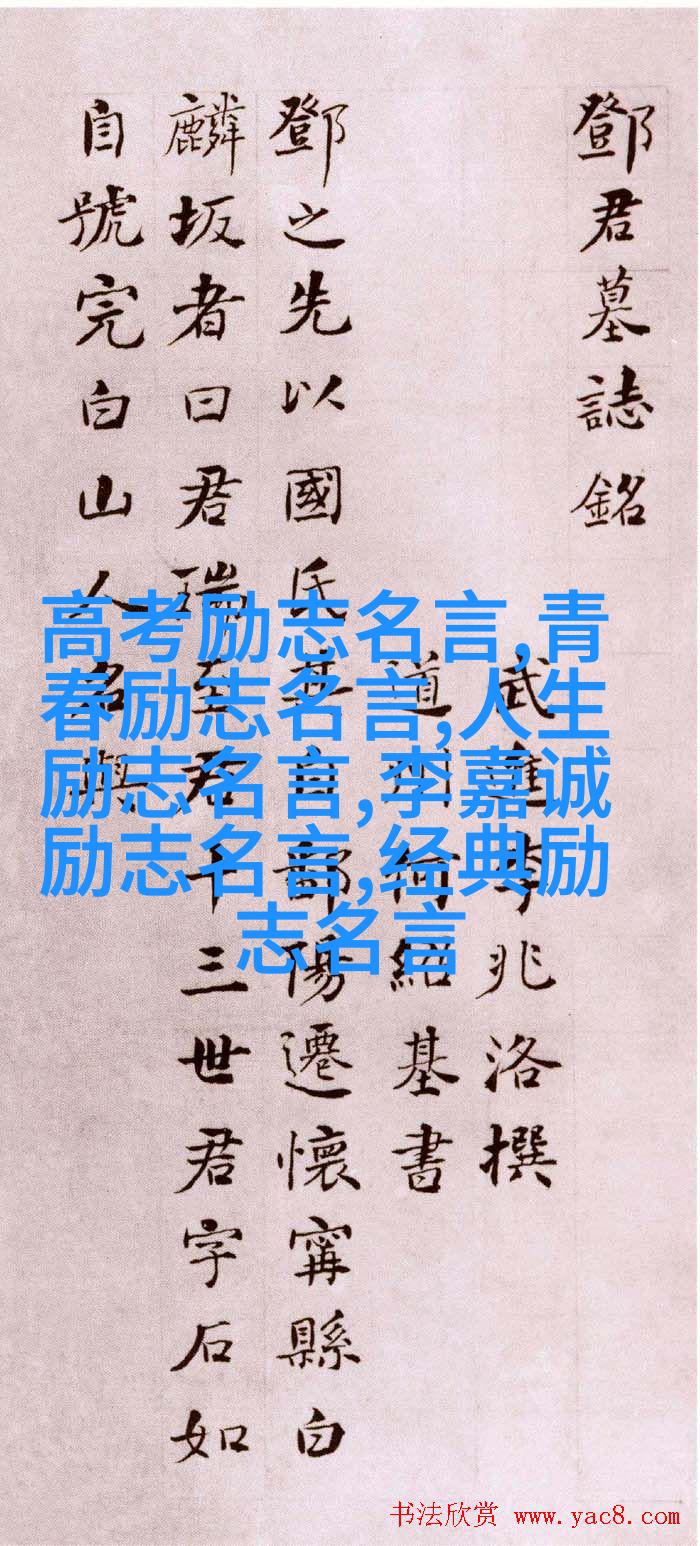 鄧君墓誌銘
武進李兆洛撰
道州何紹基書
鄧之先以國氏其自鄱陽遷懷寗縣白
麟坂者曰君瑞至君十三世君字石如
自號完白山人名與
高考励志名言,青
春励志名言,人生
励志名言,李嘉诚
励志名言,经典励
志名言
书法欣赏 www.yac8.com